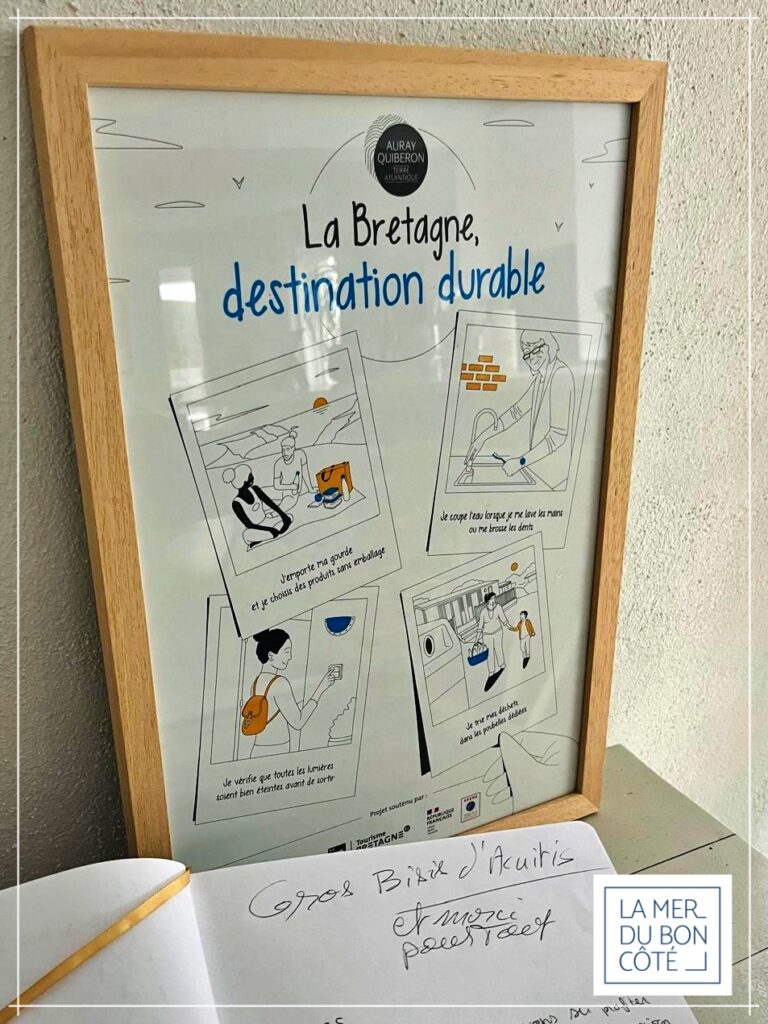 AURAY
QUIBERON
TERRE
ATLANTIQUE
La Bretagne,
destination durable
J'emporte ma gourde
et je choisis des produits sans emballage
Je coupe l'eau lorsque je me lave les mains
ou me brosse les dents
Je vérifie que toutes les lumières
soient bien éteintes avant de sortir
Je trie mes déchets
dans les poubelles dédiées
Projet soutenu par :
Tourisme
BRETAGNE
RÉPUBLIQUE
FRANÇAISE
ADEME
Gros Bisis d'Acuitis
et merci
pour Tout
LA MER
DU BON
CÔTÉ